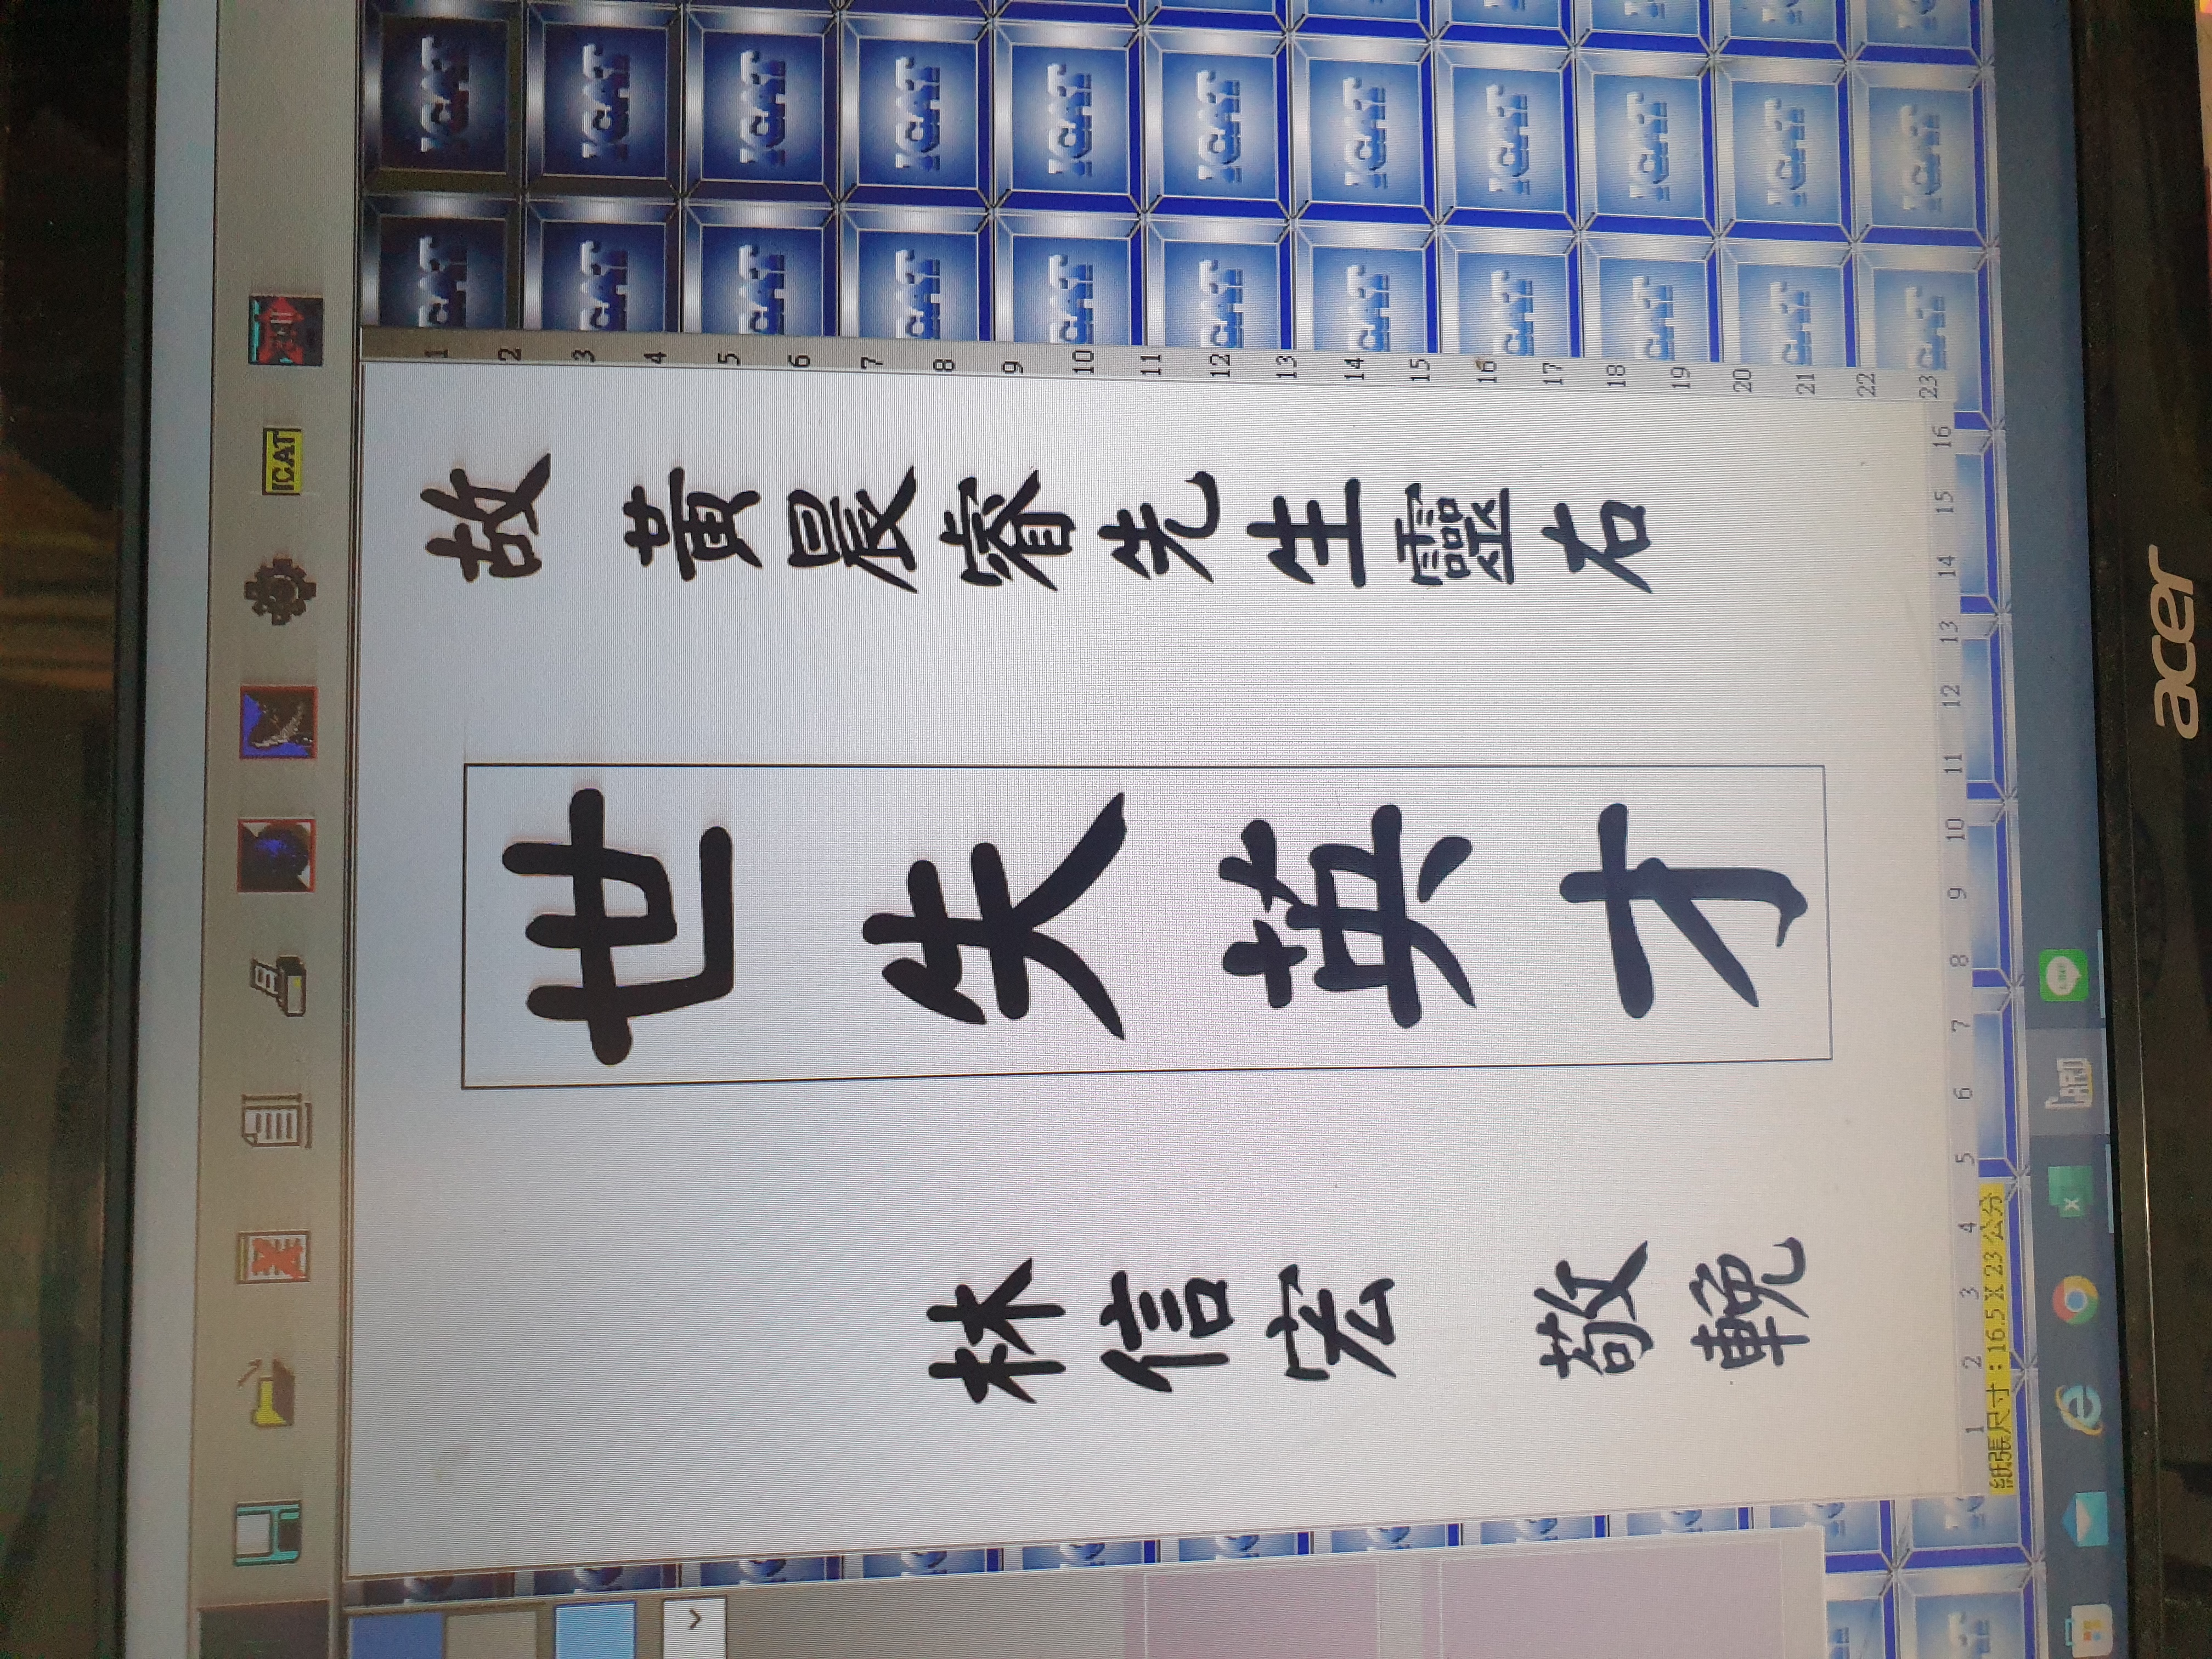 故 黃晨睿先生靈右
世失英才
林信宏 敬輓
ICAT
1 2 3 4 5 6 7 8 9 10 11 12 13 14 15 16 17 18 19 20 21 22 23
1 2 3 4 5 6 7 8 9 10 11 12 13 14 15 16
紙張尺寸：16.5 X 23 公分
acer